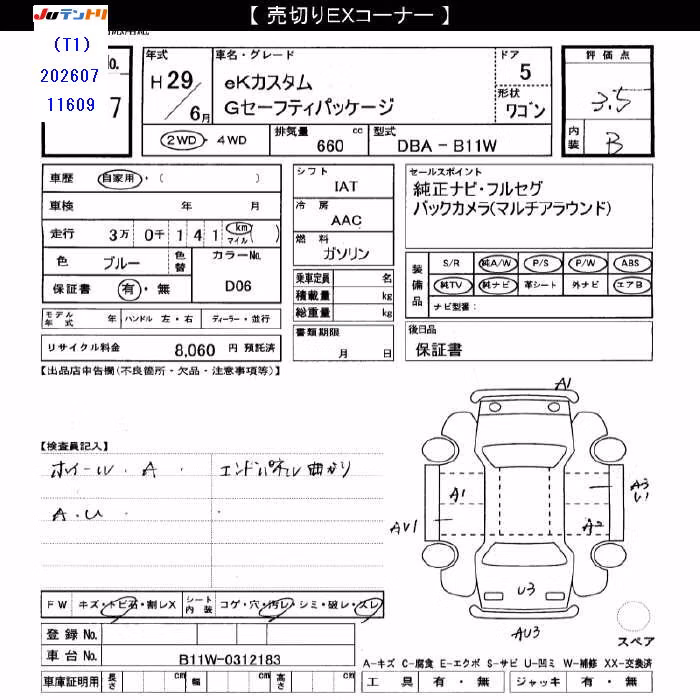 【 売切りEXコーナー 】
JUテントリ
(T1)
202607
11609
No.
7
年式
H 29 / 6月
車名・グレード
eKカスタム
Gセーフティパッケージ
ドア
5
形状
ワゴン
2WD ・ 4WD
排気量 660 cc
型式 DBA - B11W
評価点
3.5
内装 B
車歴 自家用・( )
車検 年 月
走行 3万 0千 1 4 1 km マイル ( )
色 ブルー 色替 カラーNo. D06
保証書 有・無
モデル年式 年 ハンドル 左・右 ディーラー・並行
リサイクル料金 8,060 円 預託済
シフト
IAT
冷房
AAC
燃料
ガソリン
乗車定員 名
積載量 kg
総重量 kg
書類期限
月 日
セールスポイント
純正ナビ・フルセグ
バックカメラ(マルチアラウンド)
装備品
S/R 純A/W P/S P/W ABS
純TV 純ナビ 革シート 外ナビ エアB
ナビ型番:
後日品
保証書
【出品店申告欄(不良箇所・欠品・注意事項等)】
【検査員記入】
ホイール . A . エンドパネル曲がり
A . U .
A1
A1
A3
U1
AU1
A2
U3
AU3
スペア
FW キズ・トビ石・割レX シート内装 コゲ・穴・汚レ・シミ・破レ・スレ
登録No.
車台No. B11W-0312183
車庫証明用 長さ cm 幅 cm 高さ cm
A-キズ C-腐食 E-エクボ S-サビ U-凹ミ W-補修 XX-交換済
工具 有・無 ジャッキ 有・無